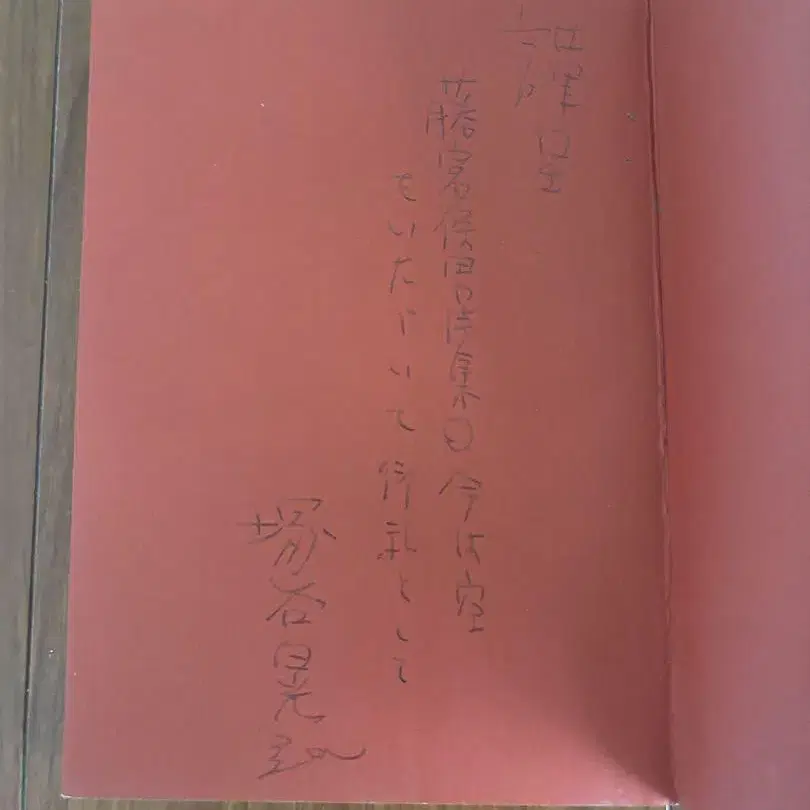 呈
藤富保男詩集の今は空
をいただいて御礼として
塚谷晃弘